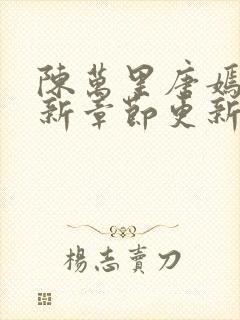 陳萬里唐嫣
新章節更新
楊志賣刀